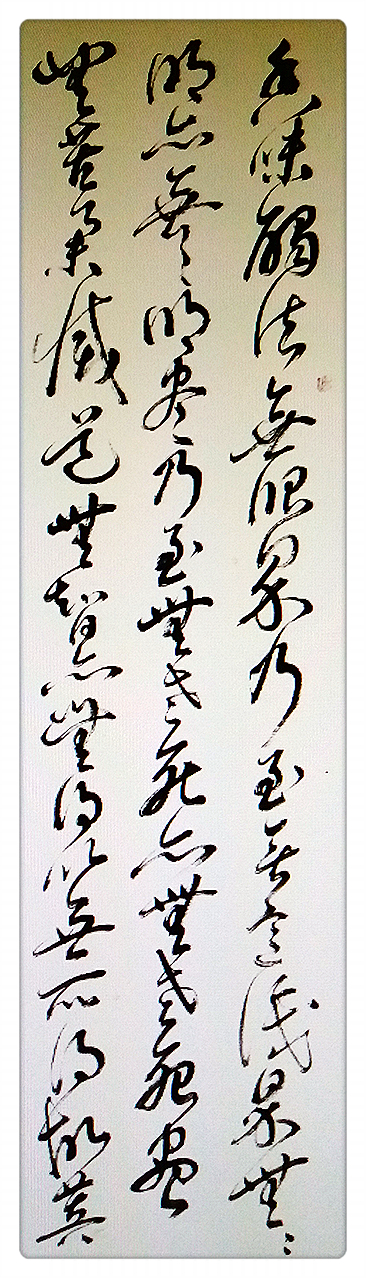 香味觸法無眼界乃至無意識界無〻
明亦無〻明盡乃至無老死亦無老死盡
無苦集滅道無智亦無得以無所得故菩